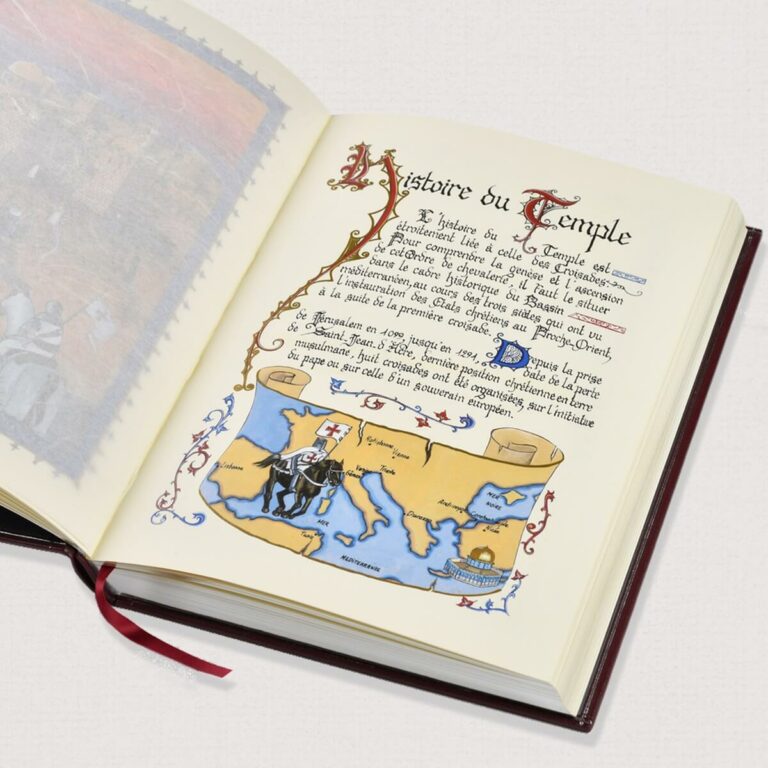 Histoire du Temple
L'histoire du Temple est
étroitement liée à celle des Croisades.
Pour comprendre la genèse et l'ascension
de cet Ordre de chevalerie, il faut le situer
dans le cadre historique du Bassin
méditerranéen, au cours des trois siècles qui ont vu
l'instauration des États chrétiens au Proche-Orient,
à la suite de la première croisade.
Depuis la prise
de Jérusalem en 1099, jusqu'en 1291, date de la perte
de Saint-Jean d'Acre, dernière position chrétienne en terre
musulmane, huit croisades ont été organisées, sur l'initiative
du pape ou sur celle d'un souverain européen.
Ratisbonne
Vienne
Trieste
Gênes
Lisbonne
MER
NOIRE
Constantinople
Nicée
Durazzo
Tunis
MER
MEDITERRANEE